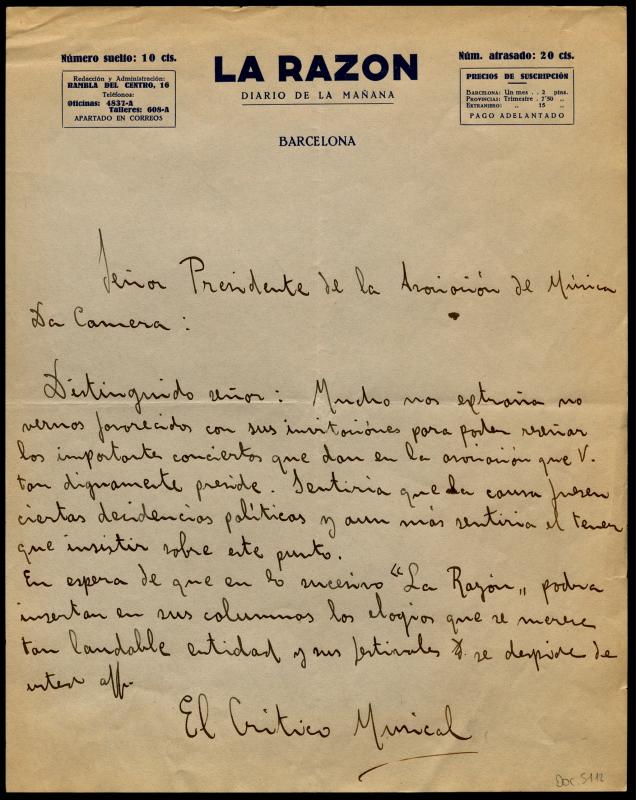 Número suelto: 10 cts.
Redacción y Administración:
RAMBLA DEL CENTRO, 16
Teléfonos:
Oficinas: 4837-A
Talleres: 608-A
APARTADO EN CORREOS
LA RAZON
DIARIO DE LA MAÑANA
BARCELONA
Núm. atrasado: 20 cts.
PRECIOS DE SUSCRIPCIÓN
BARCELONA: Un mes . . 2 ptas.
PROVINCIAS: Trimestre . 7'50 „
EXTRANJERO: „ 15 „
PAGO ADELANTADO
Señor Presidente de la Asociación de Música
Da Camera:
Distinguido señor: Mucho nos extraña no
vernos favorecidos con sus invitaciónes para poder reseñar
los importantes conciertos que dan en la asociación que V.
tan dignamente preside. Sentiria que la causa fuesen
ciertas decidencias políticas y aun más sentiria el tener
que insistir sobre este punto.
En espera de que en lo sucesivo "La Razón„ podra
insertar en sus columnas los elogios que se merece
tan laudable entidad y sus festivales se despide de
usted aff.
El Crítico Musical
Doc. 5112